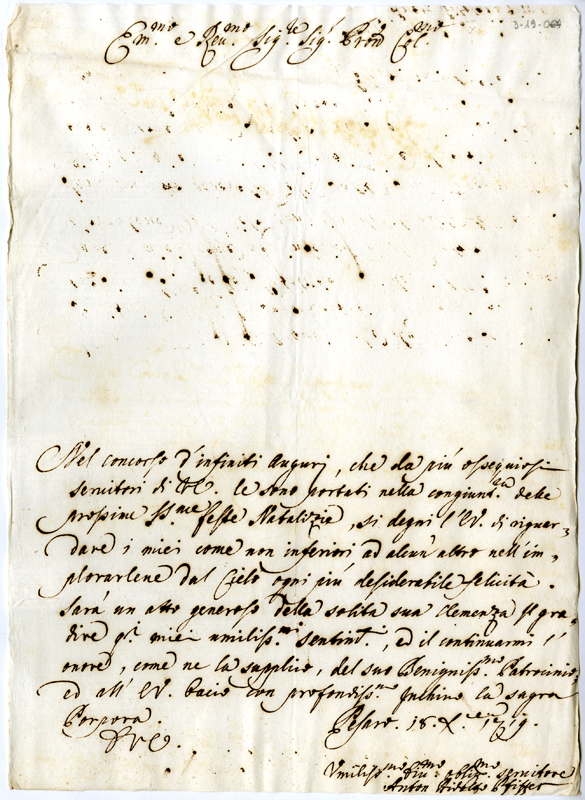 3-19-064
Em.mo e Reu.mo Sig.re Sig.r Pron Col.mo
Nel concorso d'infiniti Augurj, che da più ossequiosi
seruitori di V.E. le sono portati nella congiunt.ra delle
prossime SS.me feste Natalizie, si degni l'E.V. di riguar=
dare i miei come non inferiori ad alcun'altro nell'im=
plorarlene dal Cielo ogni più desiderabile felicità.
Sarà un atto generoso della solita sua Clemenza il gra=
dire q.ti miei umiliss.mi sentim.ti, ed il continuarmi l'
onore, come ne la supplico, del suo Benigniss.mo Patrocinio,
ed all'E.V. bacio con profondiss.mo Inchino la sagra
Porpora.
Pesaro. 18. X.bre
D.V.E.
Umiliss.mo Diu.mo Oblig.mo seruitore
Anton Ridolfo Pfiffer